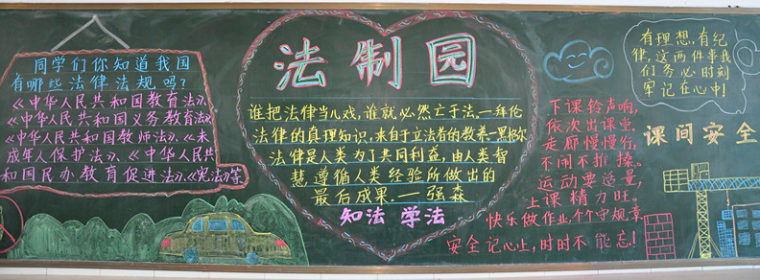 同学们你知道我国
有哪些法律法规吗?
《中华人民共和国教育法》、
《中华人民共和国义务教育法》
《中华人民共和国教师法》、《未
成年人保护法》、《中华人民共
和国民办教育促进法》、《宪法》等
法制园
谁把法律当儿戏,谁就必然亡于法.—拜伦
法律的真理知识,来自于立法者的教养—黑格尔
法律是人类为了共同利益,由人类智
慧遵循人类经验所做出的
最后成果.——强森
知法 学法
有理想,有纪
律,这两件事我
们务必时刻
牢记在心中!
课间安全
下课铃声响,
依次出课堂.
走廊慢慢行,
不闹不推搡。
运动要适量,
上课精力旺。
快乐做作业,个个守规章
安全记心上,时时不能忘!